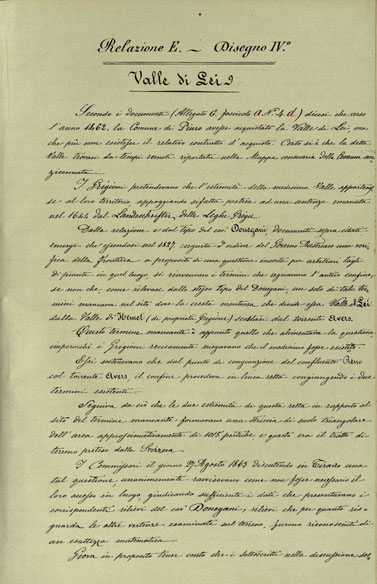 Relazione E. — Disegno IV.º
Valle di Lei
Secondo i documenti (Allegato C fascicolo a Nº 4. d) dicesi che verso
l'anno 1462. la Comune di Piuro avesse acquistato la Valle di Lei, ma
che più non esistesse il relativo contratto d'acquisto. Certo si è che la detta
Valle trovasi da tempi remoti riportata nella Mappa censuaria della Comune an-
zicennata.
I Grigioni pretendevano che l'estremità della medesima Valle appartenes-
se al loro territorio, appoggiando siffatta pretesa ad una sentenza emanata
nel 1644 dal Landschrifter, delle Leghe Grigie.
Dalla relazione e dal tipo del cons. Donegani, documenti sopra citati
emerge che essendosi nel 1827, eseguita d'ordine del Governo Austriaco una veri-
fica della frontiera a proposito di una questione insorta per arbitrari tagli
di piante in quel luogo, si rinvennero i termini che segnavano l'antico confine,
se non che come rilevasi dallo stesso tipo del Donegani, un solo di tali ter-
mini mancava nel sito dove la cresta montuosa, che divide essa Valle di Lei
dalla Valle d'Hemel (di proprietà Grigione) vicina del torrente Avers.
Questo termine mancante è appunto quello che alimentava la questione
imperocchè i Grigioni recisamente negavano che il medesimo fosse esistito.
Essi sostenevano che dal punto di congiunzione del confluente Reno
col torrente Avers, il confine procedeva in linea retta congiungendo i due
termini esistenti.
Seguiva da ciò che le due estremità di questa retta in rapporto al
sito del termine mancante formavano una striscia di suolo triangolare
dell'area approssimativamente di 1015 pertiche e questo era il tratto di
terreno preteso dalla Svizzera.
I Commissari il giorno 27 Agosto 1863 discutendo in Tirano una
tal questione, unanimemente ravvisavano come non fosse necessario il
loro accesso in luogo, giudicando sufficienti i dati che presentavano i
corrispondenti rilievi del cons. Donegani, rilievi che per quanto ri-
guarda le altre vertenze esaminate sul terreno, furono riconosciuti di
un esattezza matematica.
Giova in proposito tener conto che i sottoscritti nella discussione sos-